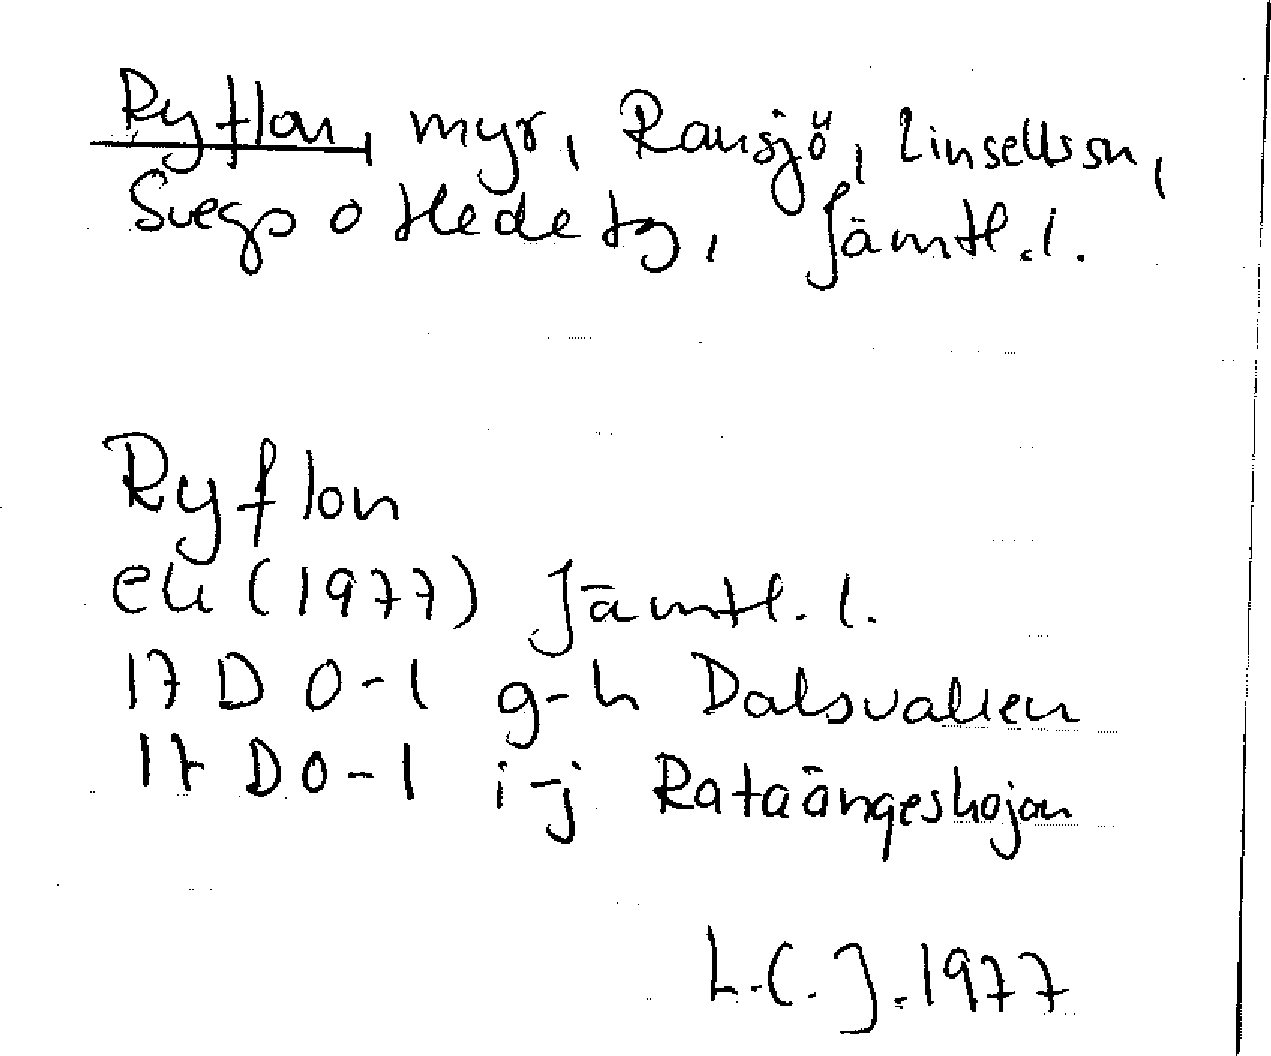 Ryflon, myr, Ransjö, Linsellssn,
Svegs o Hede tg, Jämtl.l.
Ryflon
ek (1977) Jämtl.l.
17 D 0-1 g-h Dalsvallen
17 D 0-1 i-j Rataängeskojan
L.C.J. 1977